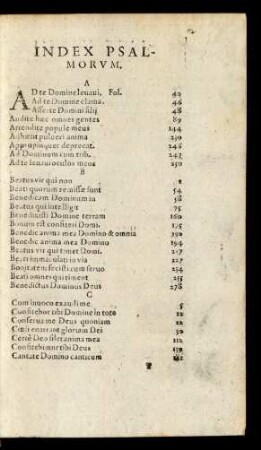 INDEX PSAL-
MORVM.
A
AD te Domine leuaui, Fol. 42
Ad te Domine clama. 46
Afferte Domini filij 48
Audite hæc omnes gentes 89
Attendite popule meus 144
Adhæsit anima 230
Appropinquet deprecat. 246
Ad Dominum cum trib. 242
Ad te leuaui oculos meos 250
B
Beatus vir qui non
Beati quorum remissæ sunt 54
Benedicam Dominum in 58
Beatus qui intelligit 75
Benedixisti Domine terram 160
Bonum est confiteri Domi. 175
Benedic anima mea Domino & omnia 190
Benedic anima mea Domino 194
Beatus vir qui timet Domi. 217
Beati immaculati in via 227
Bonitatem fecisti cum seruo 234
Beati omnes qui timent 255
Benedictus Dominus Deus 278
C
Cum inuocarem exaudi me 5
Confitebor tibi Domine in toto 12
Conserua me Deus quoniam 22
Cœli enarrant gloriam Dei 30
Confitebimur tibi Deus
Cantate Domino canticum